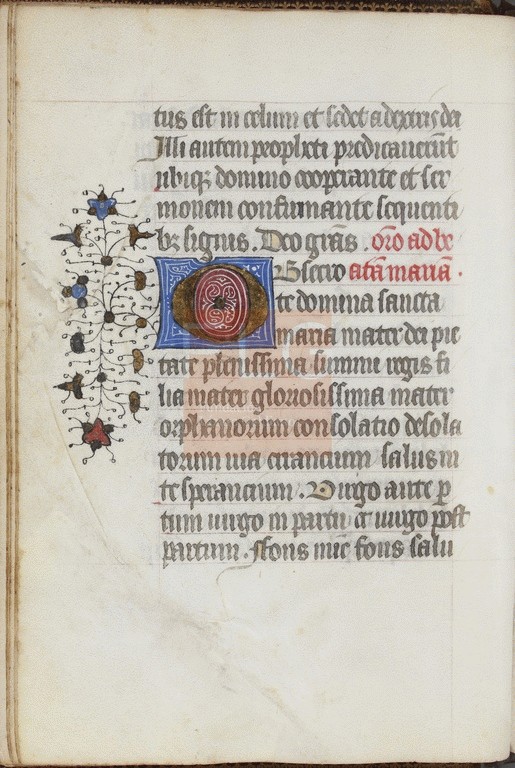 tus est in celum et sedet a dextris dei
Illi autem propheti predicauerūt
ubiq; domino cooperante et ser
monem confirmante sequenti
bꝫ signis. Deo grās. oro ad be
Bsecro atā mariā.
te domina sancta
maria mater dei pie
tate plenissima summi regis fi
lia mater gloriosissima mater
orphanorum consolatio desola
torum uia errancium salus in
te sperancium. Virgo ante ꝑ
tum uirgo in partu et uirgo post
partum. Fons mīe fons salu